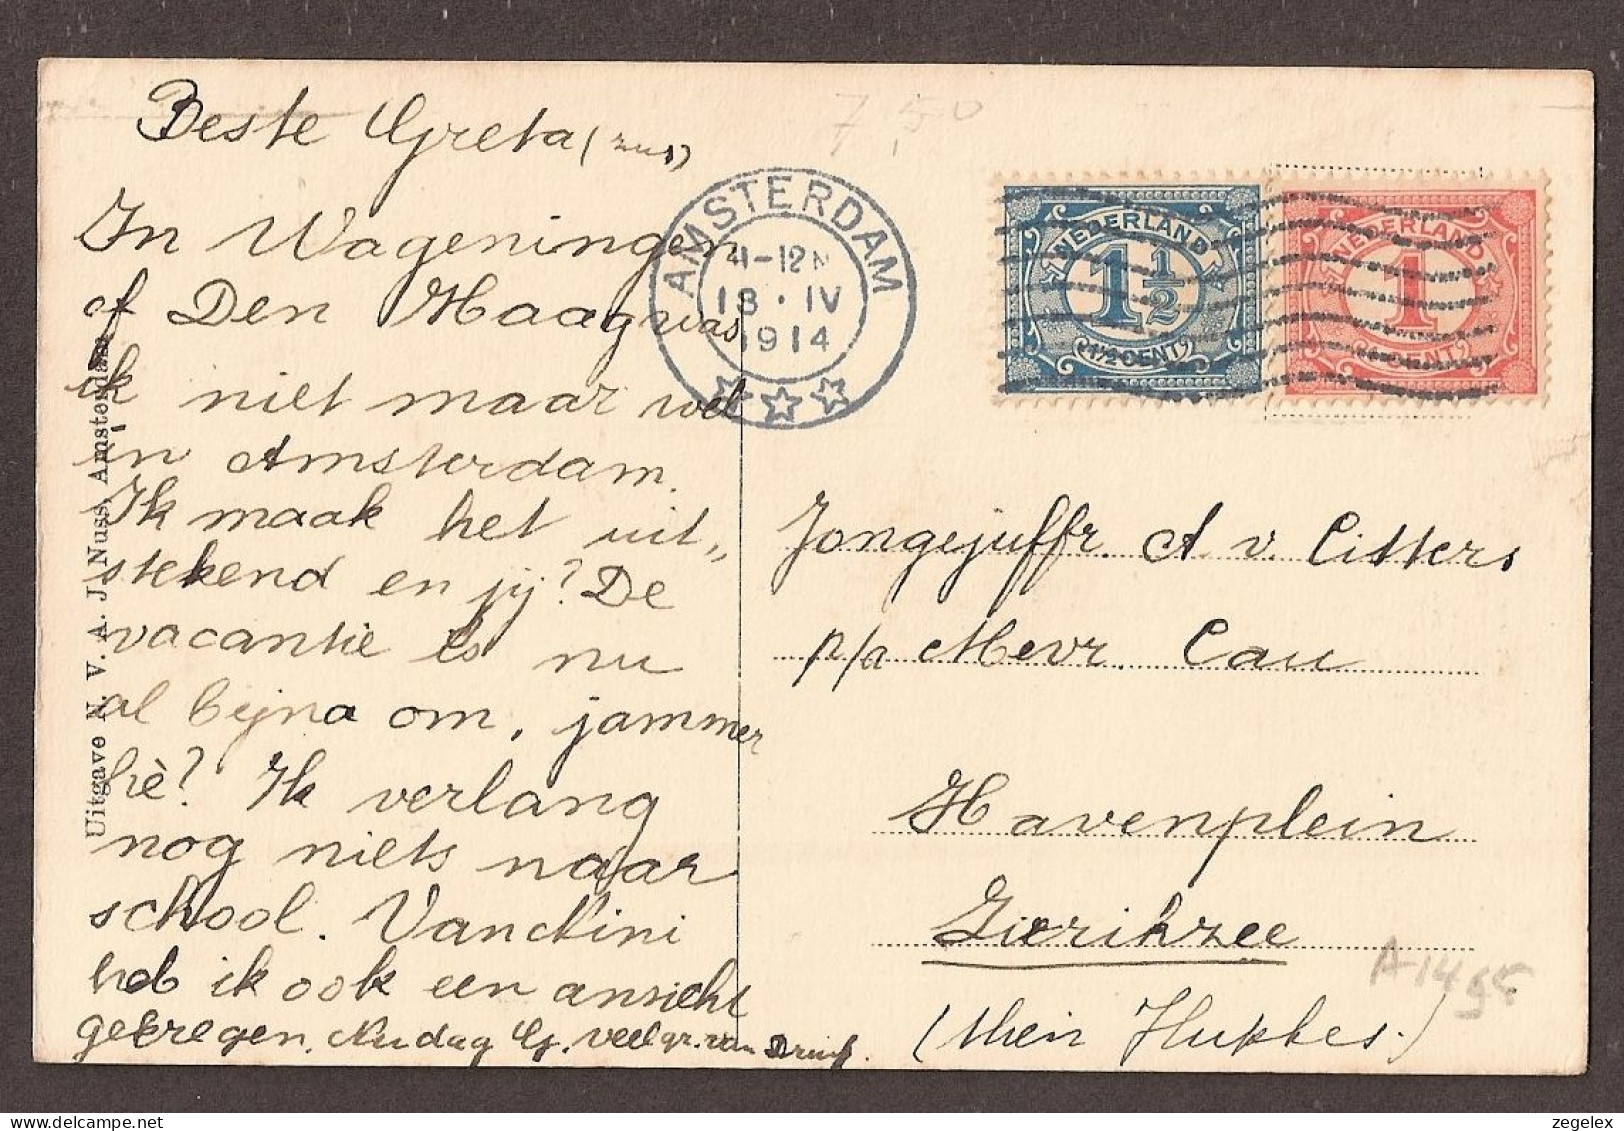 Beste Greta (zus)
In Wageningen
of Den Haag was
ik niet maar wel
in Amsterdam.
Ik maak het uit„
stekend en jij? De
vacantie is nu
al bijna om, jammer
hè? Ik verlang
nog niets naar
school. Van Nini
heb ik ook een ansicht
gekregen. Nu dag G. veel gr. van
Uitgave N. V. A. J. Nuss, Amsterdam
7,50
AMSTERDAM
4-12 N
18 · IV
1914
NEDERLAND
1 1/2
1 1/2 CENT
NEDERLAND
1
CENT
Jongejuffr. A v. Citters
p/a Mevr. Cau
Havenplein
Zierikzee
A1495
zegelex.com